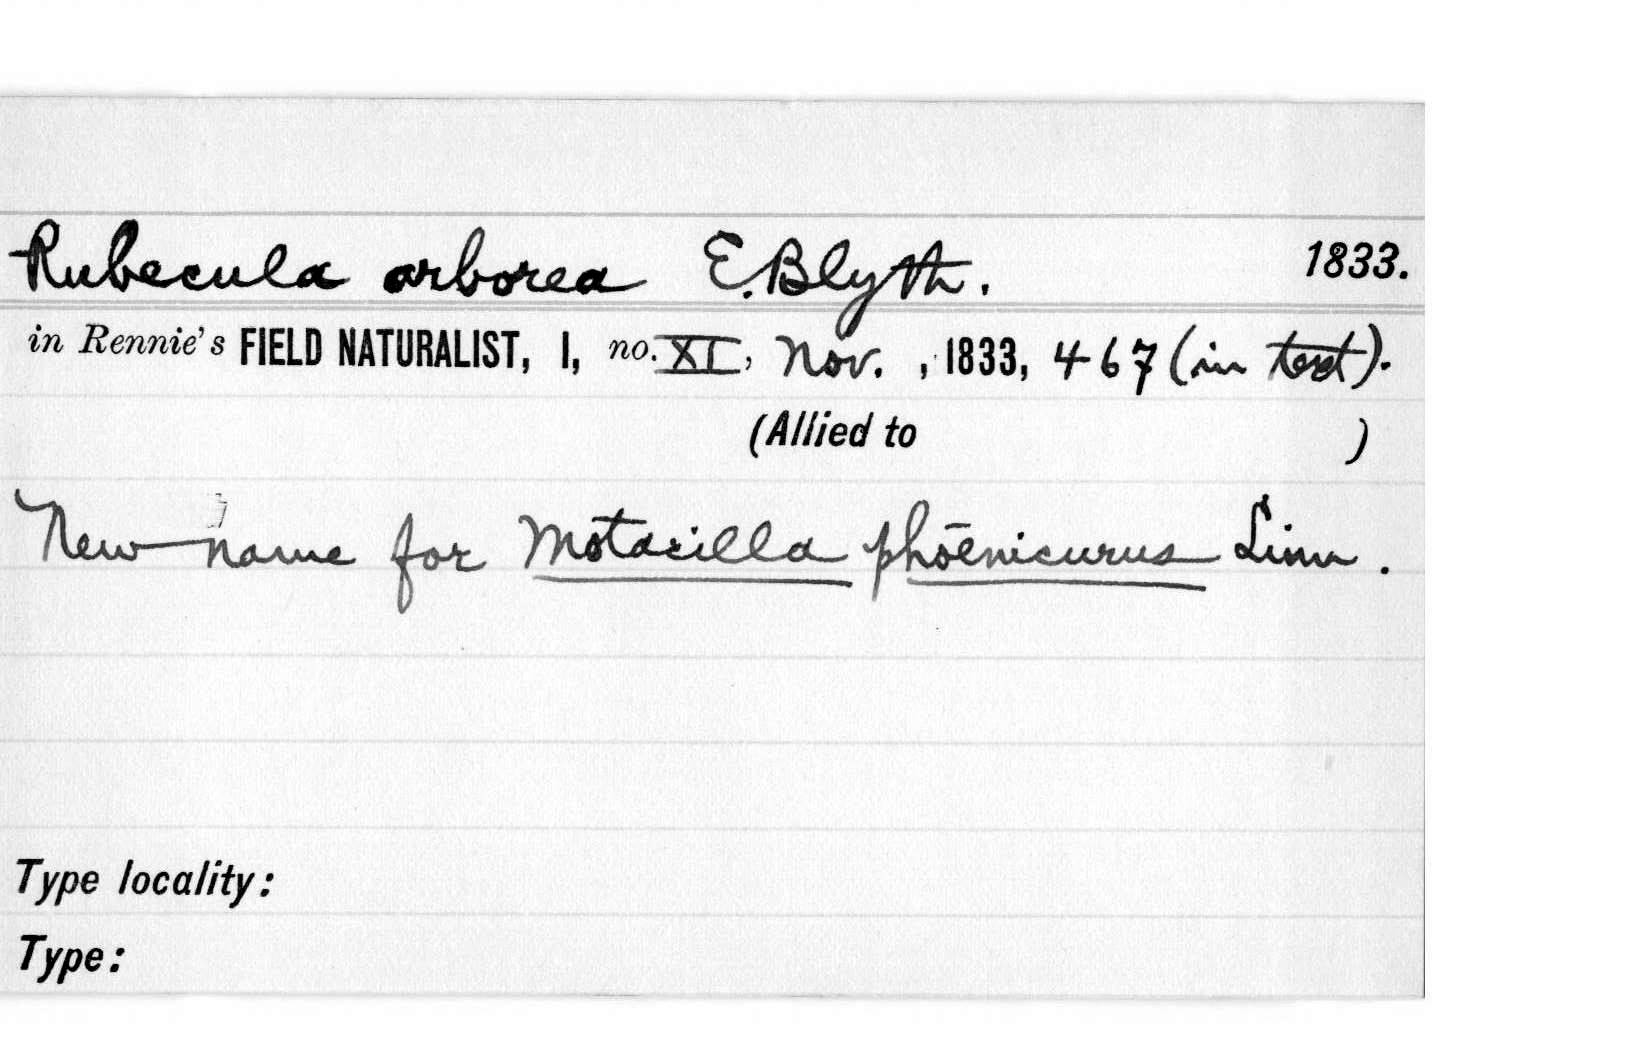 Rubecula arborea E. Blyth. 1833.
in Rennie's FIELD NATURALIST, I, no. XI, Nov. , 1833, 467 (in text).
(Allied to )
New name for Motacilla phoenicurus Linn.
Type locality:
Type: